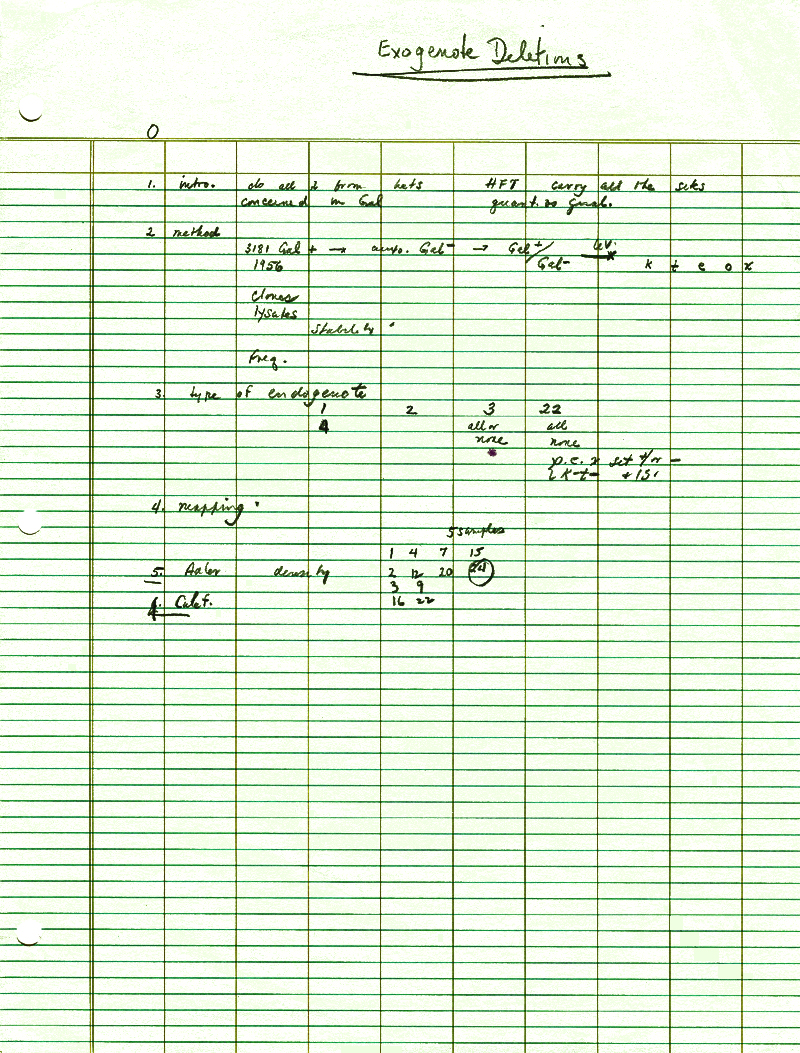 Exogenote Deletions
O
1. intro. do all λ from hets HFT carry all the
concerned in Gal quant. vs qual.
2 method
3181 Gal + → auxo. Gal- → Gal+/Gal-
1956 k t e o x
clones
lysates
stability
Freq.
3. type of endogenote
1 2 3 22
4 all or all
none none
set +/or -
K-t-
4. mapping
5 samples
1 4 7 15
5. Adler density 2 12 20
3 9
6. Calef. 16 22